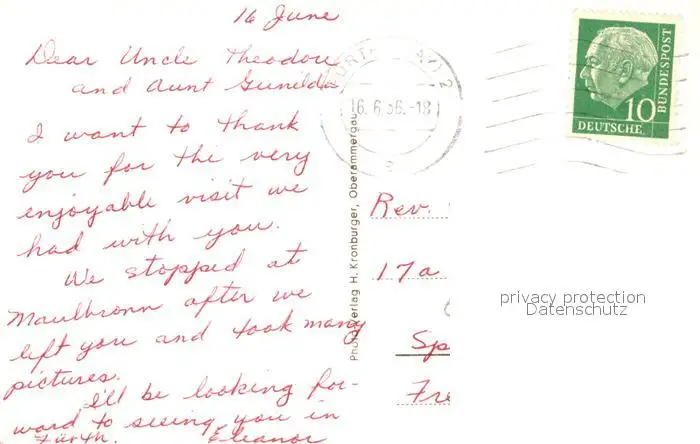 16 June
Dear Uncle Theodore
and Aunt Gunilda,
I want to thank
you for the very
enjoyable visit we
had with you.
We stopped at
Maulbronn after we
left you and took many
pictures.
I'll be looking for-
ward to seeing you in
Fürth. Eleanor
16.6.56.-18
2
Photo-Verlag H. Kronburger, Oberammergau
10
DEUTSCHE
BUNDESPOST
Rev.
17a
Sp
Fre
privacy protection
Datenschutz